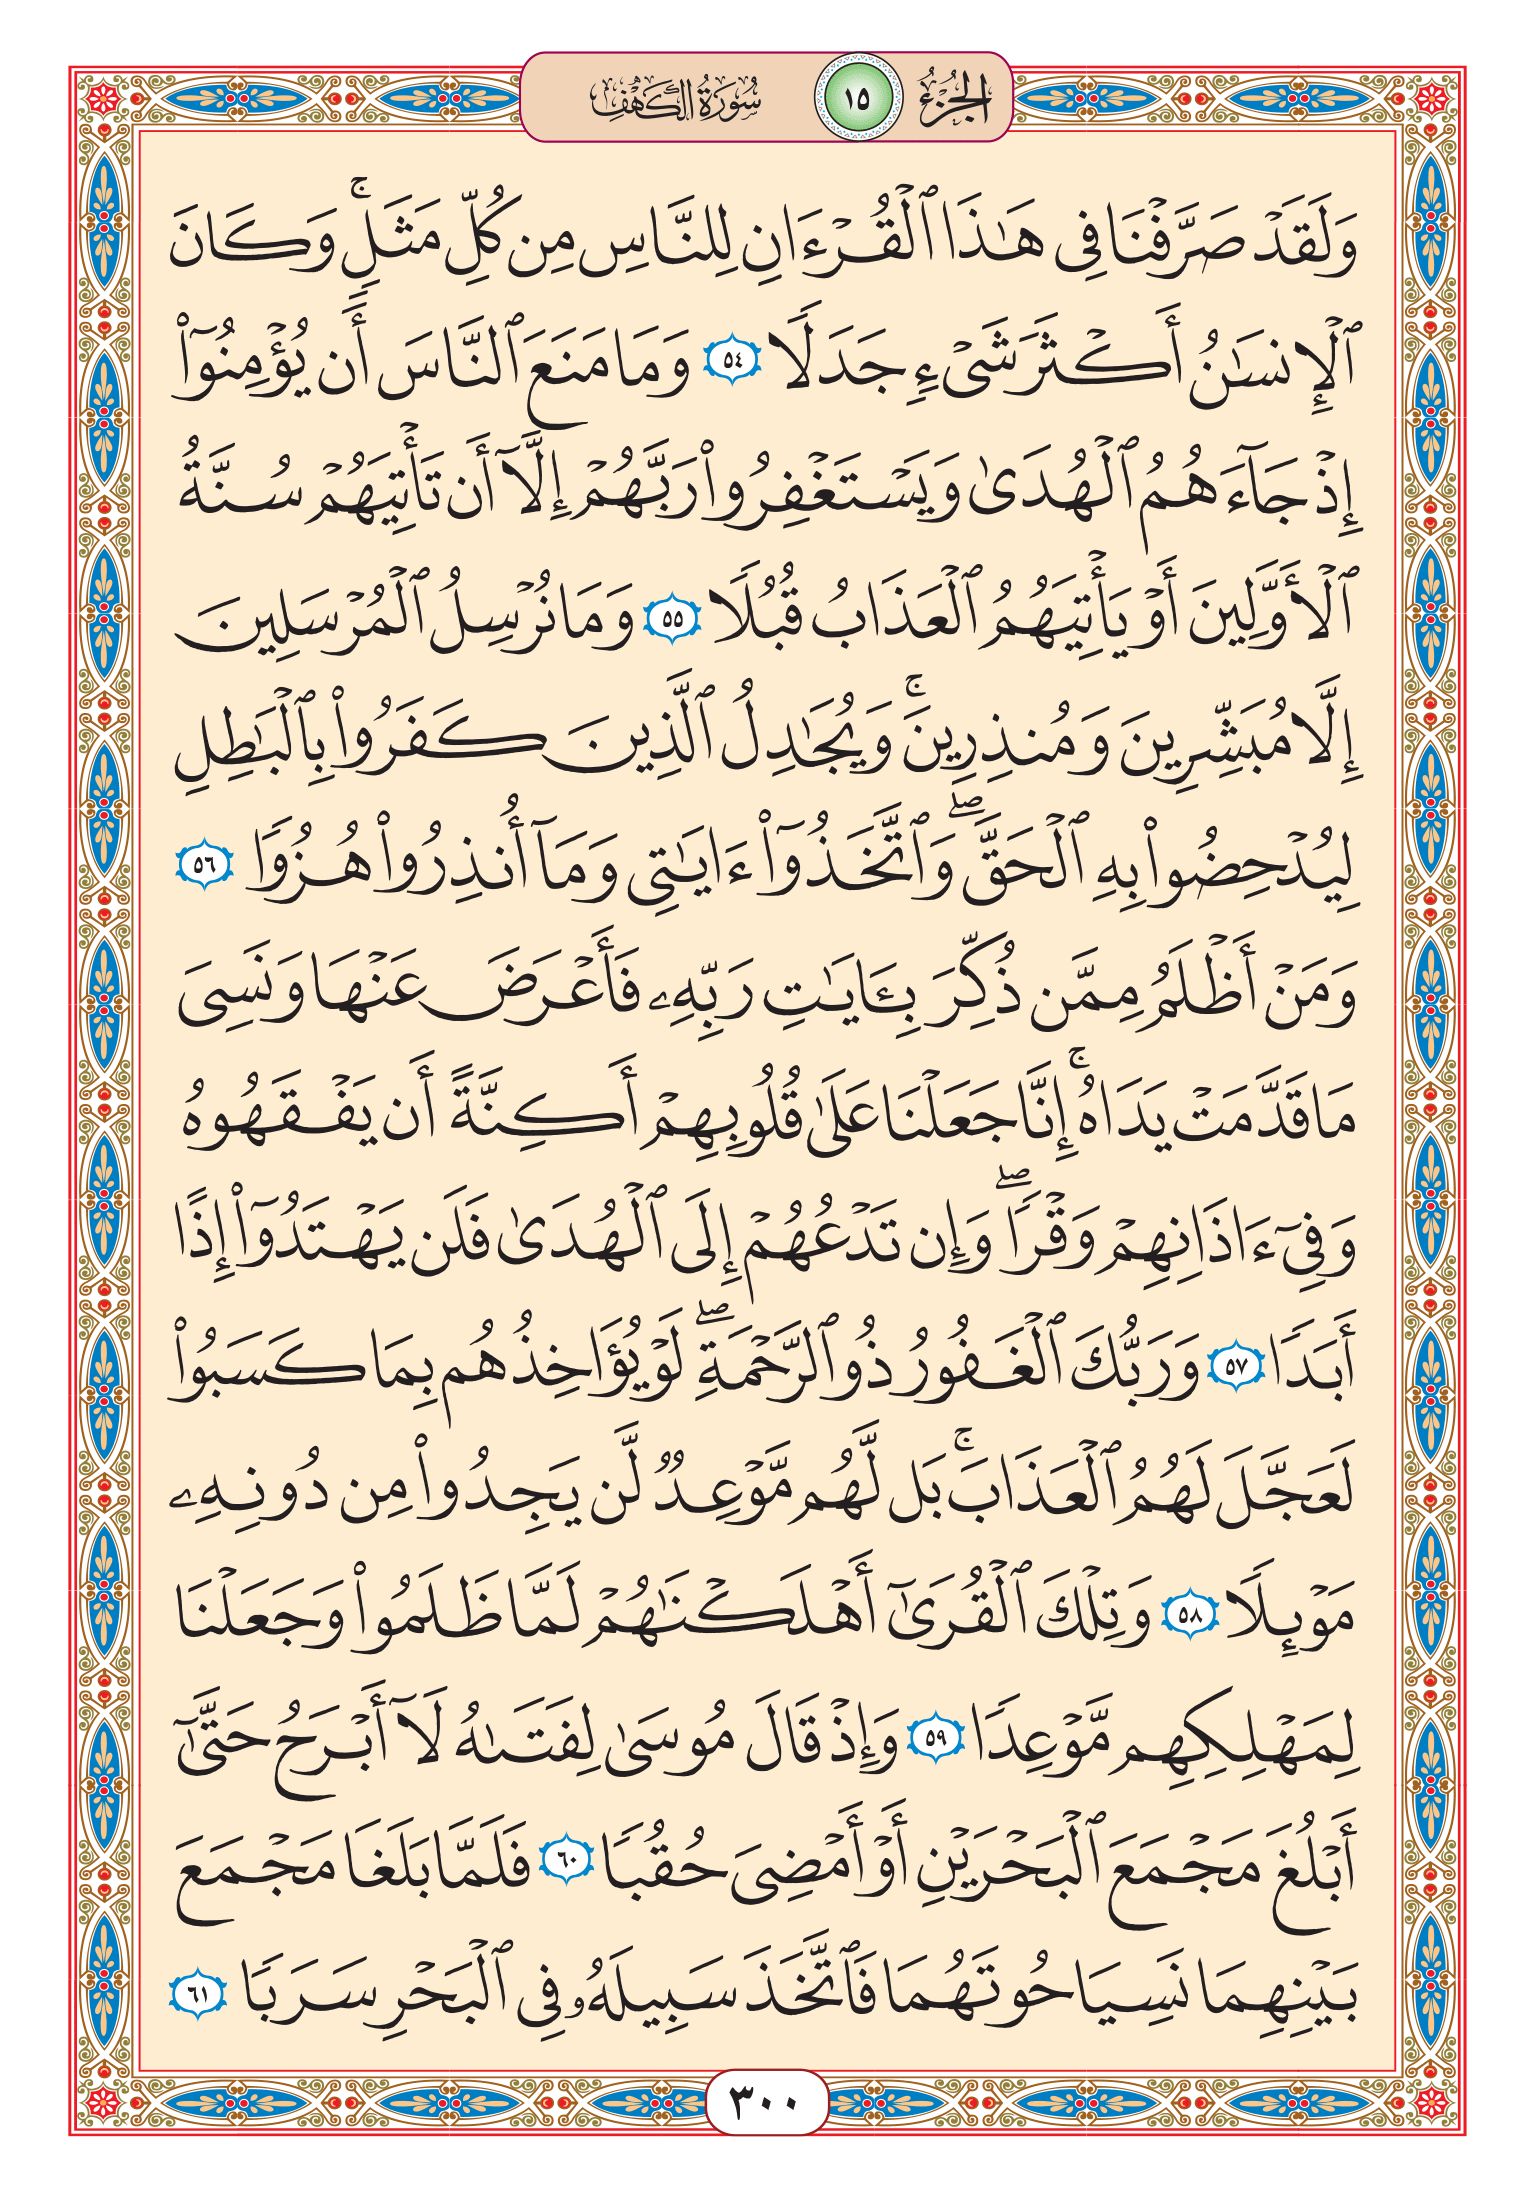 الجزء ١٥ سورة الكهف
وَلَقَدْ صَرَّفْنَا فِى هَٰذَا ٱلْقُرْءَانِ لِلنَّاسِ مِن كُلِّ مَثَلٍ ۚ وَكَانَ
ٱلْإِنسَٰنُ أَكْثَرَ شَىْءٍ جَدَلًا ٥٤ وَمَا مَنَعَ ٱلنَّاسَ أَن يُؤْمِنُوٓا۟
إِذْ جَآءَهُمُ ٱلْهُدَىٰ وَيَسْتَغْفِرُوا۟ رَبَّهُمْ إِلَّآ أَن تَأْتِيَهُمْ سُنَّةُ
ٱلْأَوَّلِينَ أَوْ يَأْتِيَهُمُ ٱلْعَذَابُ قُبُلًا ٥٥ وَمَا نُرْسِلُ ٱلْمُرْسَلِينَ
إِلَّا مُبَشِّرِينَ وَمُنذِرِينَ ۚ وَيُجَٰدِلُ ٱلَّذِينَ كَفَرُوا۟ بِٱلْبَٰطِلِ
لِيُدْحِضُوا۟ بِهِ ٱلْحَقَّ ۖ وَٱتَّخَذُوٓا۟ ءَايَٰتِى وَمَآ أُنذِرُوا۟ هُزُوًا ٥٦
وَمَنْ أَظْلَمُ مِمَّن ذُكِّرَ بِـَٔايَٰتِ رَبِّهِۦ فَأَعْرَضَ عَنْهَا وَنَسِىَ
مَا قَدَّمَتْ يَدَاهُ ۚ إِنَّا جَعَلْنَا عَلَىٰ قُلُوبِهِمْ أَكِنَّةً أَن يَفْقَهُوهُ
وَفِىٓ ءَاذَانِهِمْ وَقْرًا ۖ وَإِن تَدْعُهُمْ إِلَى ٱلْهُدَىٰ فَلَن يَهْتَدُوٓا۟ إِذًا
أَبَدًا ٥٧ وَرَبُّكَ ٱلْغَفُورُ ذُو ٱلرَّحْمَةِ ۖ لَوْ يُؤَاخِذُهُم بِمَا كَسَبُوا۟
لَعَجَّلَ لَهُمُ ٱلْعَذَابَ ۚ بَل لَّهُم مَّوْعِدٌ لَّن يَجِدُوا۟ مِن دُونِهِۦ
مَوْئِلًا ٥٨ وَتِلْكَ ٱلْقُرَىٰٓ أَهْلَكْنَٰهُمْ لَمَّا ظَلَمُوا۟ وَجَعَلْنَا
لِمَهْلِكِهِم مَّوْعِدًا ٥٩ وَإِذْ قَالَ مُوسَىٰ لِفَتَىٰهُ لَآ أَبْرَحُ حَتَّىٰٓ
أَبْلُغَ مَجْمَعَ ٱلْبَحْرَيْنِ أَوْ أَمْضِىَ حُقُبًا ٦٠ فَلَمَّا بَلَغَا مَجْمَعَ
بَيْنِهِمَا نَسِيَا حُوتَهُمَا فَٱتَّخَذَ سَبِيلَهُۥ فِى ٱلْبَحْرِ سَرَبًا ٦١
٣٠٠